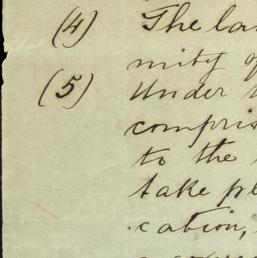 (4) The la
mity of
(5) Under
compris
to the
take pl
cation,